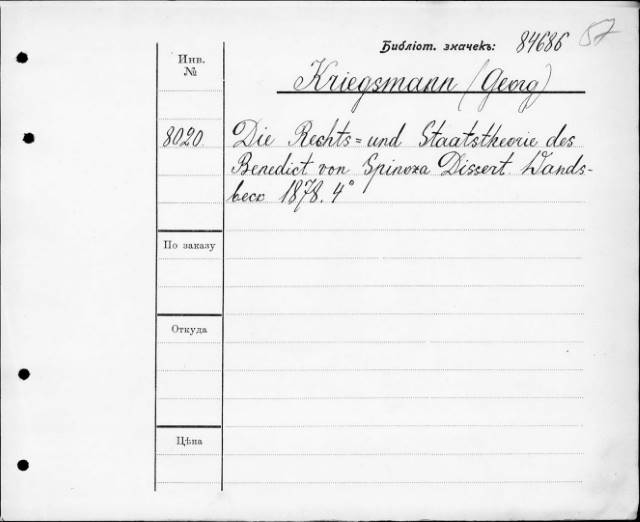 Библіот. значекъ: 84686 57
Инв. №
Kriegsmann (Georg)
8020. Die Rechts= und Staatstheorie des
Benedict von Spinoza Dissert. Wands-
beck 1878. 4°
По заказу
Откуда
Цѣна